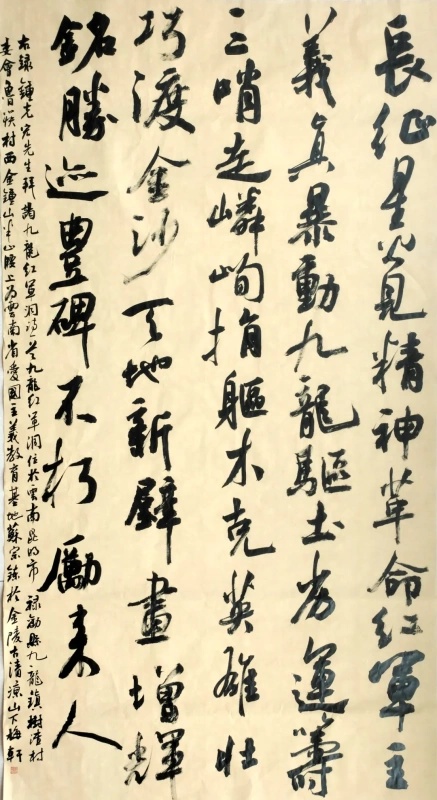 長征星火見精神革命紅軍主
義真暴動九龍驅土劣運籌
三哨走嶙峋捐軀木克英雄壯
巧渡金沙天地新壁畫增輝
銘勝迹豊碑不朽勵来人
右録鍾老先生拜謁九龍紅軍洞詩一首九龍紅軍洞位於雲南昆明市禄勸縣九龍鎮樹渣村
委會魯村西金鐘山半山腰上為雲南省愛國主義教育基地蘇宗於金陵古清涼山下梅軒